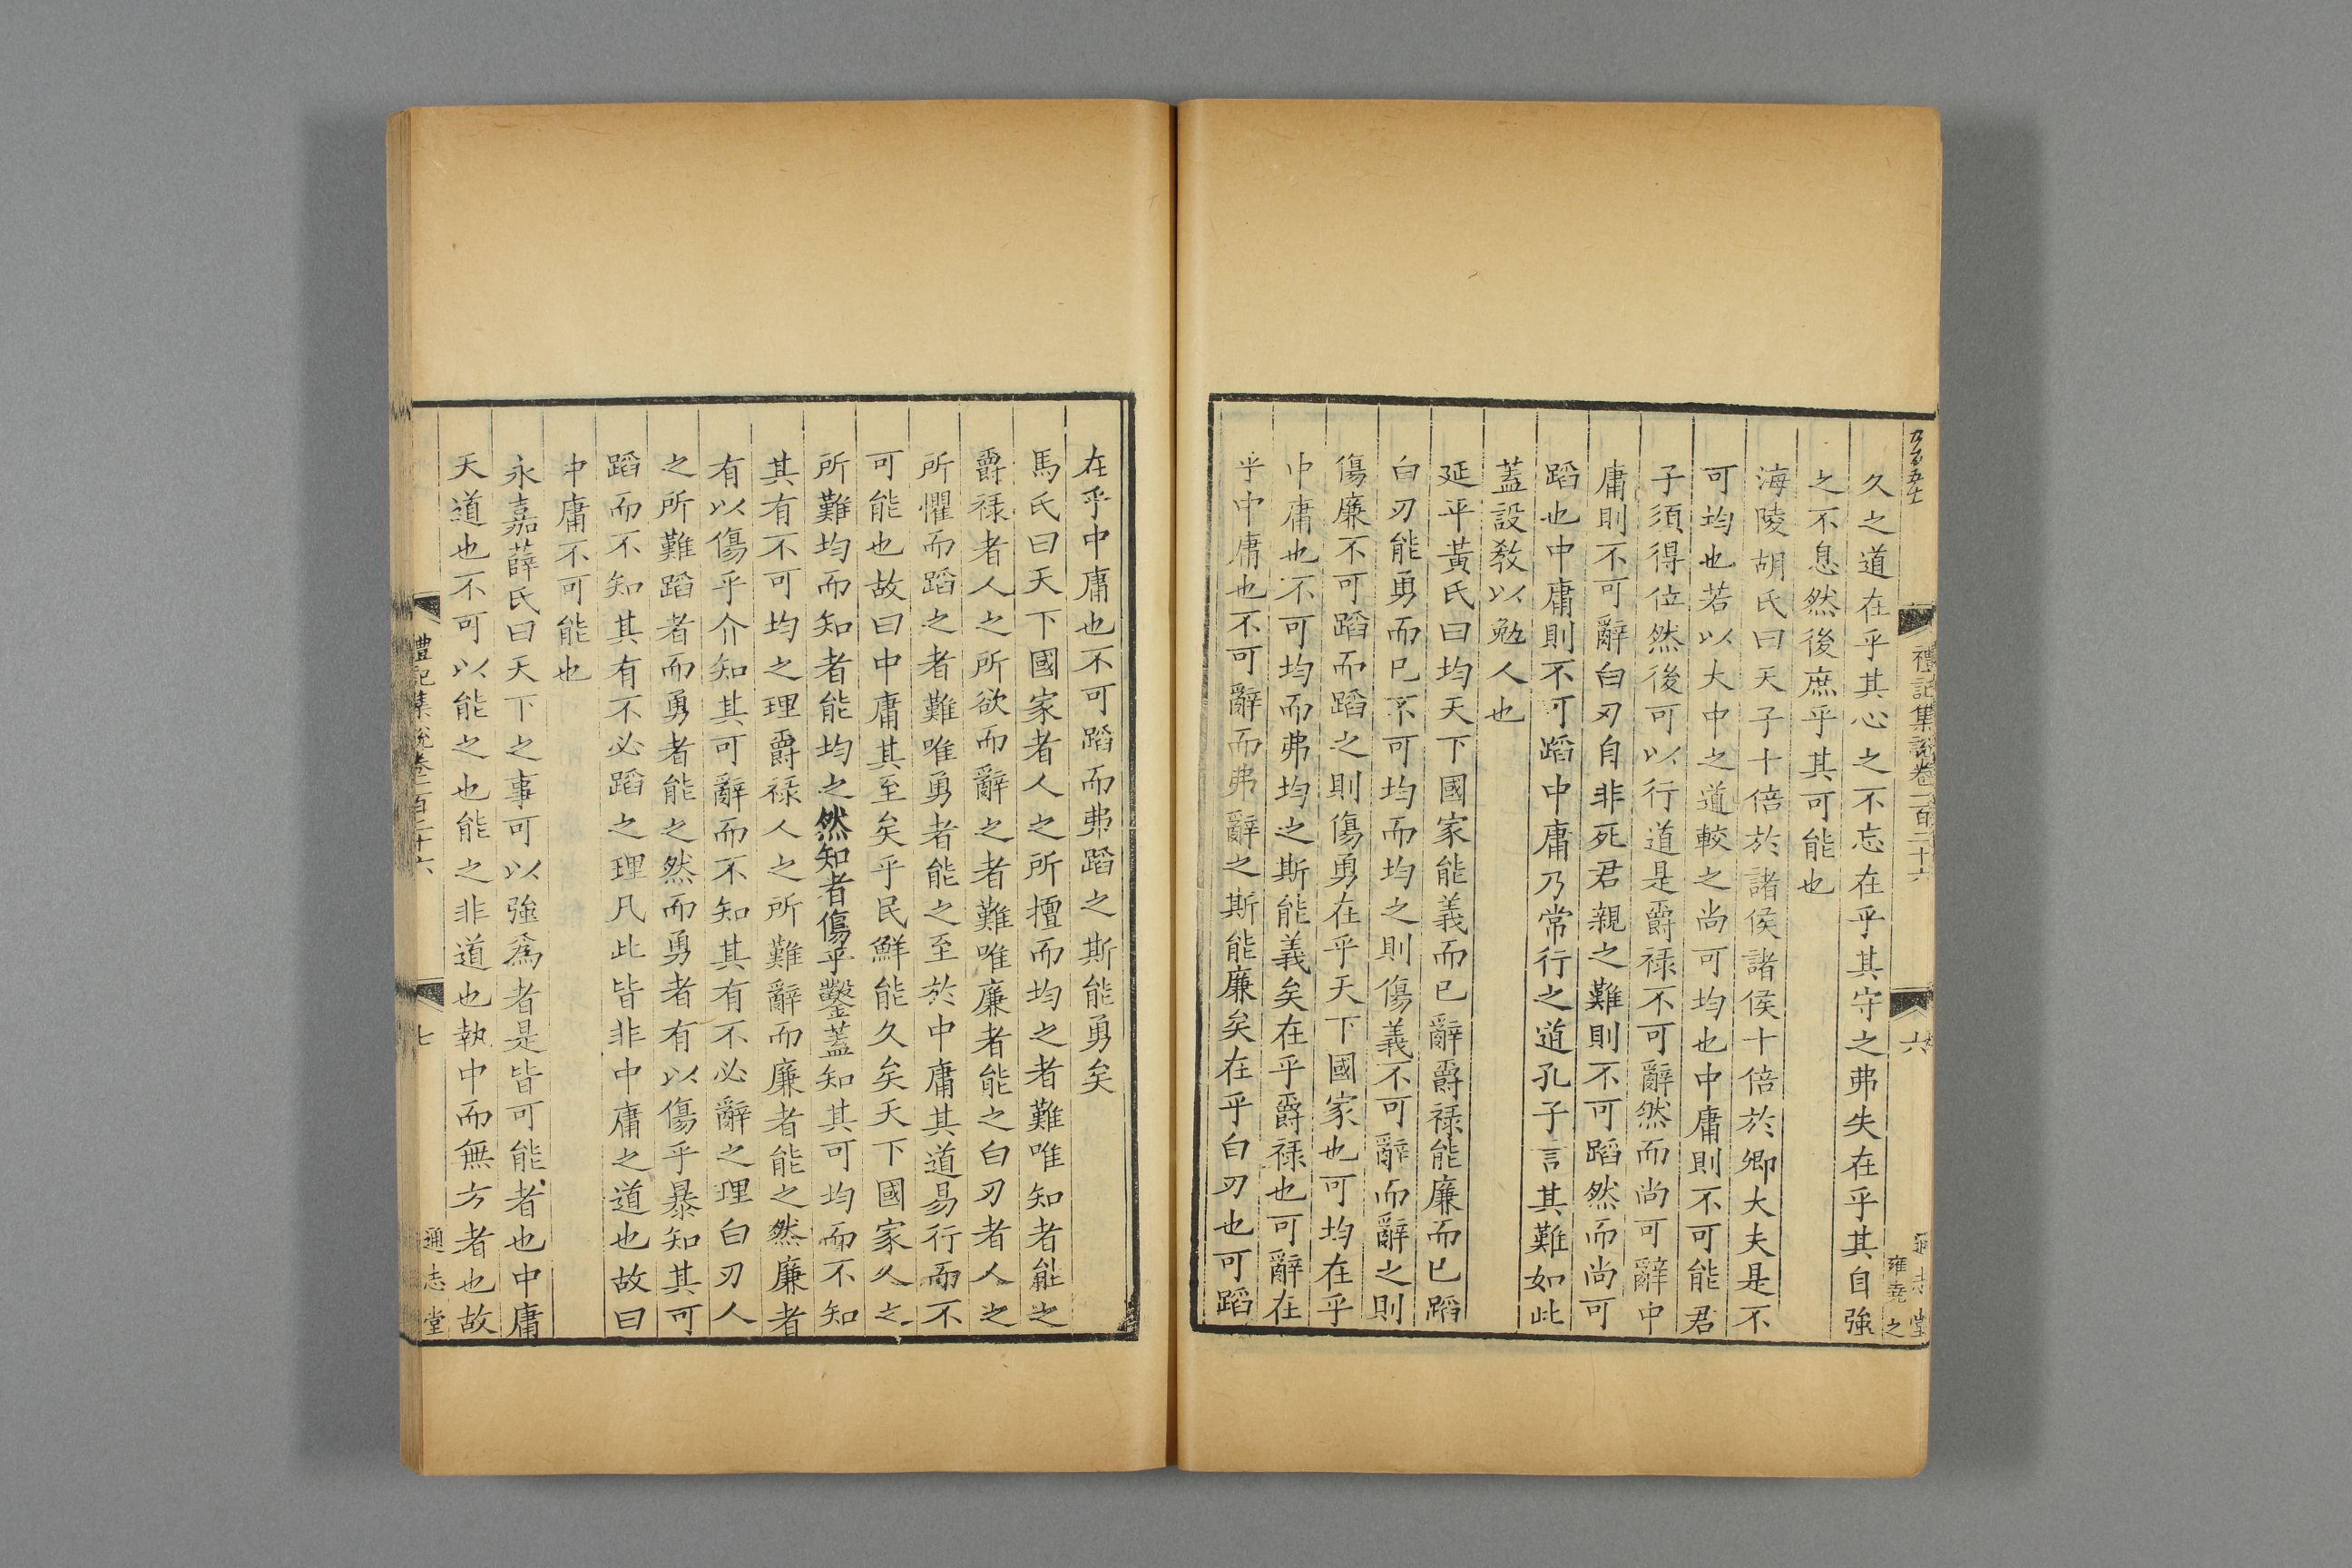 禮記集説卷一百二十六
六
久之道在乎其心之不忘在乎其守之弗失在乎其自強
之不息然後庶乎其可能也
海陵胡氏曰天子十倍於諸侯諸侯十倍於卿大夫是不
可均也若以大中之道較之尚可均也中庸則不可能君
子須得位然後可以行道是爵禄不可辭然而尚可辭中
庸則不可辭白刃自非死君親之難則不可蹈然而尚可
蹈也中庸則不可蹈中庸乃常行之道孔子言其難如此
蓋設敎以勉人也
延平黃氏曰均天下國家能義而已辭爵禄能廉而已蹈
白刃能勇而已不可均而均之則傷義不可辭而辭之則
傷廉不可蹈而蹈之則傷勇在乎天下國家也可均在乎
中庸也不可均而弗均之斯能義矣在乎爵禄也可辭在
乎中庸也不可辭而弗辭之斯能廉矣在乎白刃也可蹈
在乎中庸也不可蹈而弗蹈之斯能勇矣
馬氏曰天下國家者人之所擅而均之者難唯知者能之
爵禄者人之所欲而辭之者難唯廉者能之白刃者人之
所懼而蹈之者難唯勇者能之至於中庸其道易行而不
可能也故曰中庸其至矣乎民鮮能久矣天下國家人之
所難均而知者能均之然知者傷乎鑿蓋知其可均而不知
其有不可均之理爵禄人之所難辭而廉者能之然廉者
有以傷乎介知其可辭而不知其有不必辭之理白刃人
之所難蹈者而勇者能之然而勇者有以傷乎暴知其可
蹈而不知其有不必蹈之理凡此皆非中庸之道也故曰
中庸不可能也
永嘉薛氏曰天下之事可以強爲者是皆可能者也中庸
天道也不可以能之也能之非道也執中而無方者也故
禮記集説卷一百二十六
七
通志堂